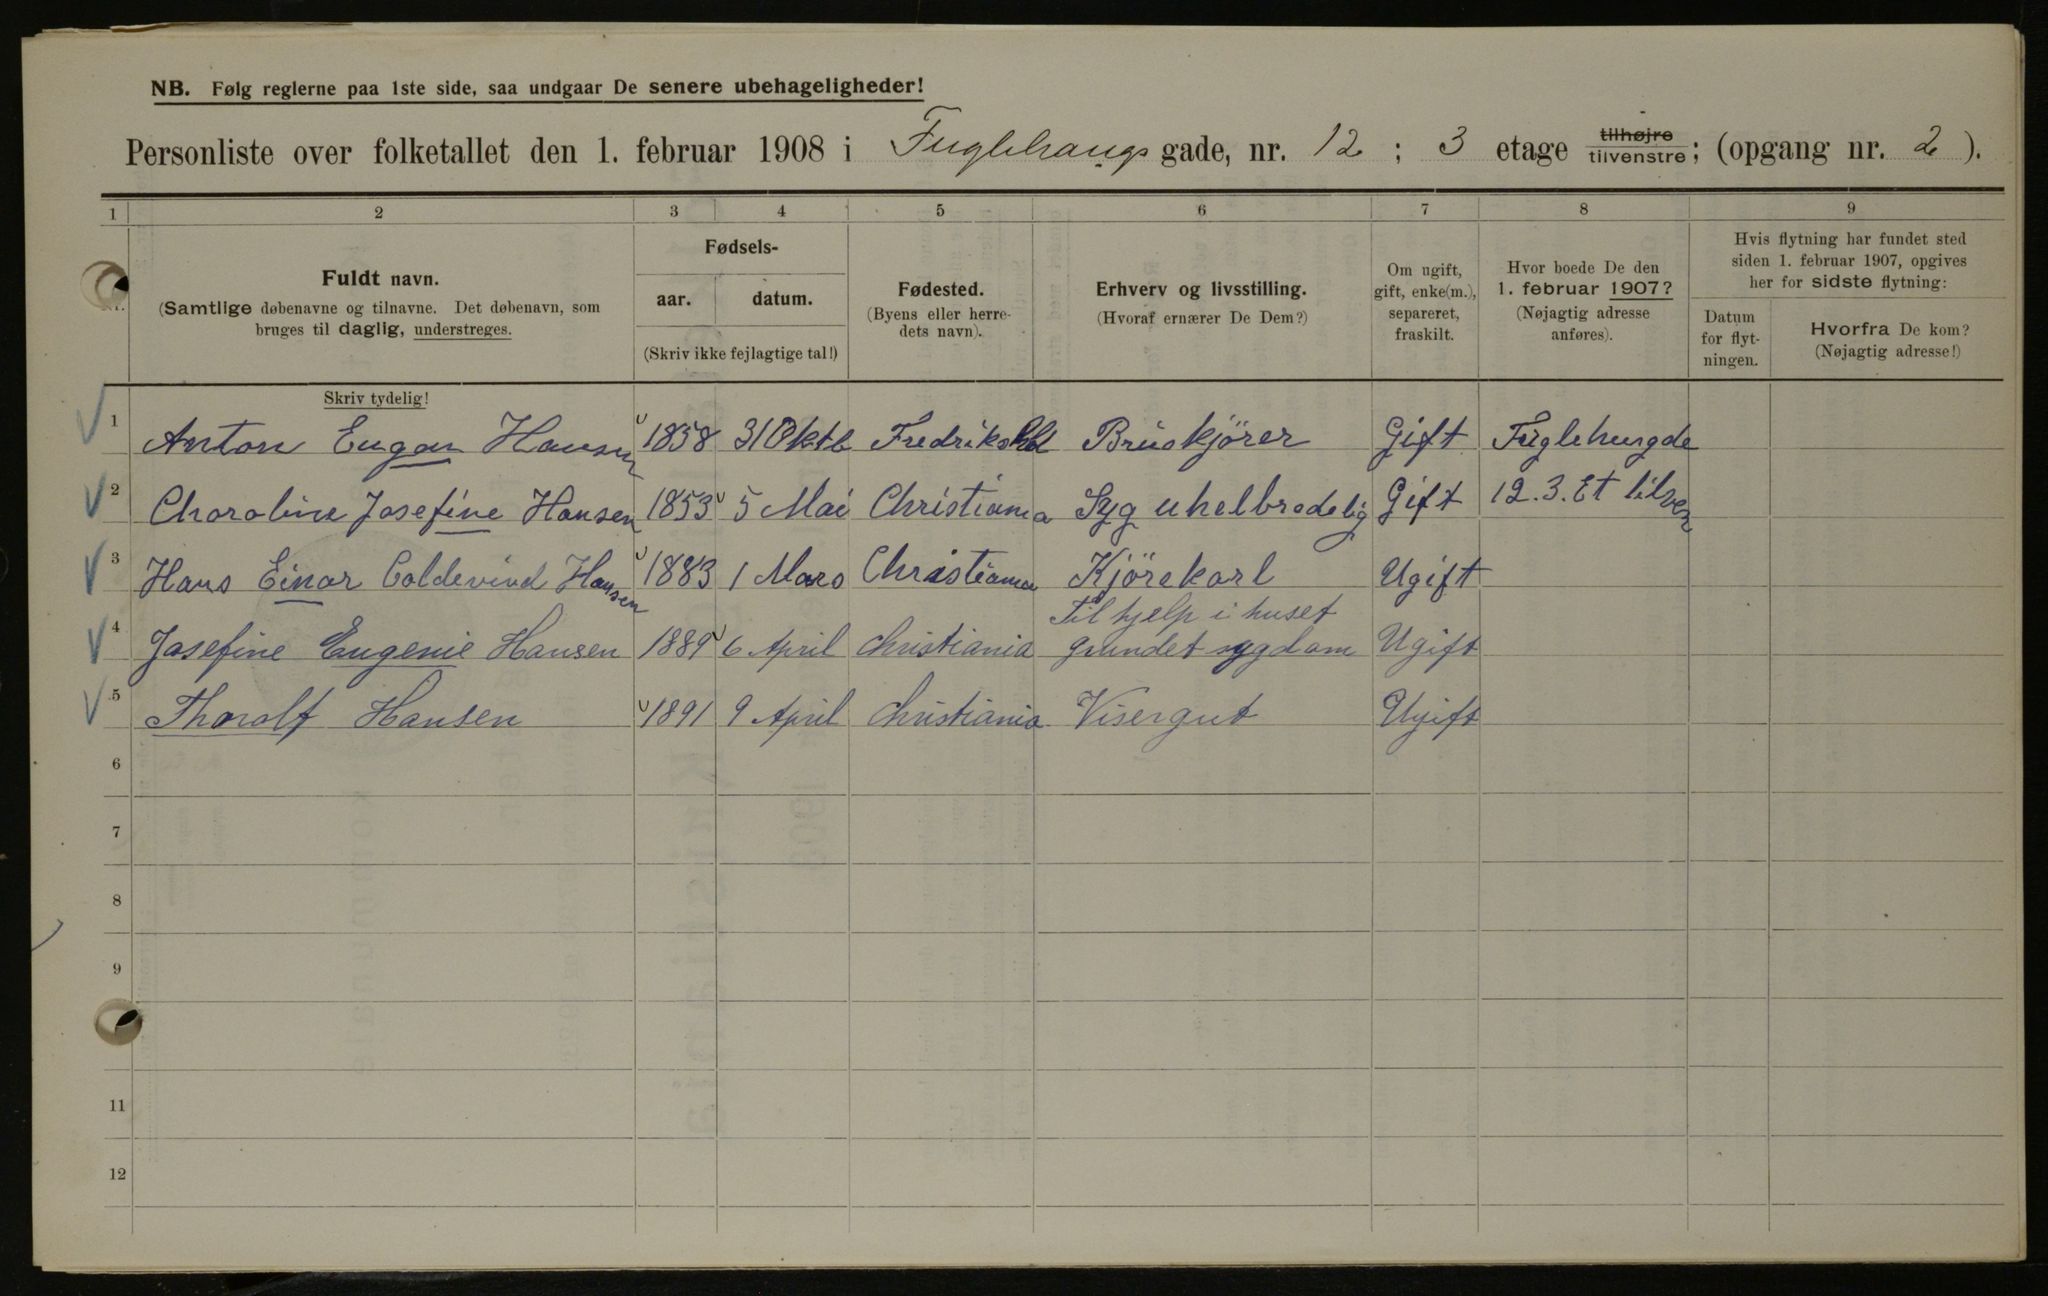 NB. Følg reglerne paa 1ste side, saa undgaar De senere ubehageligheder!
Personliste over folketallet den 1. februar 1908 i Fuglehaugs gade, nr. 12 ; 3 etage tilhøjre tilvenstre; (opgang nr. 2 ).
1 2 3 4 5 6 7 8 9
Fuldt navn.
(Samtlige døbenavne og tilnavne. Det døbenavn, som
bruges til daglig, understreges.
Skriv tydelig!
Fødsels-
aar. datum.
(Skriv ikke fejlagtige tal!)
Fødested.
(Byens eller herre-
dets navn).
Erhverv og livsstilling.
(Hvoraf ernærer De Dem?)
Om ugift,
gift, enke(m.),
separeret,
fraskilt.
Hvor boede De den
1. februar 1907?
(Nøjagtig adresse
anføres).
Hvis flytning har fundet sted
siden 1. februar 1907, opgives
her for sidste flytning:
Datum
for flyt-
ningen.
Hvorfra De kom?
(Nøjagtig adresse!)
1 Anton Eugen Hansen 1858 31 Oktb Fredrikshld Bruskjörer Gift Fuglehaugde
2 Charoline Josefine Hansen 1853 5 Mai Christiania Syg uhelbredelig Gift 12.3. Et tilven
3 Hans Einar Coldevind Hansen 1883 1 Mars Christiania Kjörekarl Ugift
Til hjelp i huset
4 Josefine Eugenie Hansen 1889 6 April Christiania grundet sygdom Ugift
5 Thoralf Hansen 1891 9 April Christiania Visergut Ugift
6
7
8
9
11
12